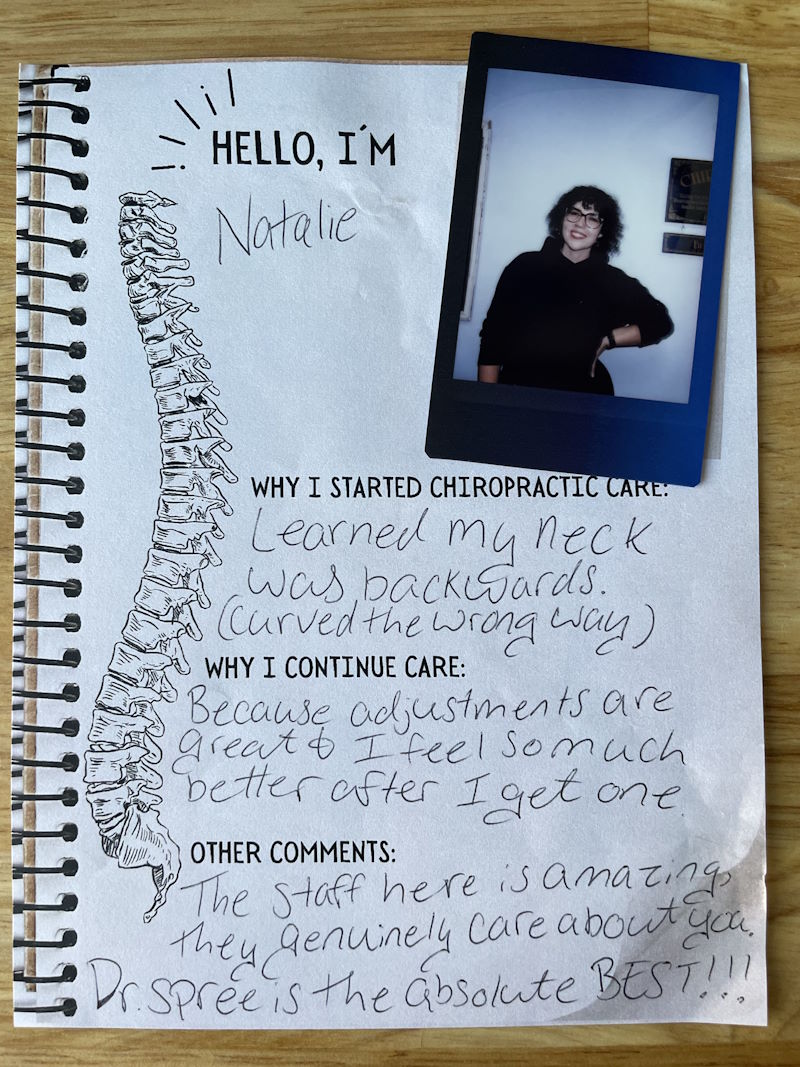 HELLO, I'M
Natalie
WHY I STARTED CHIROPRACTIC CARE:
Learned my neck
was backwards.
(Curved the wrong way)
WHY I CONTINUE CARE:
Because adjustments are
great & I feel so much
better after I get one.
OTHER COMMENTS:
The staff here is amazing,
they genuinely care about you.
Dr. Spree is the absolute BEST!!!